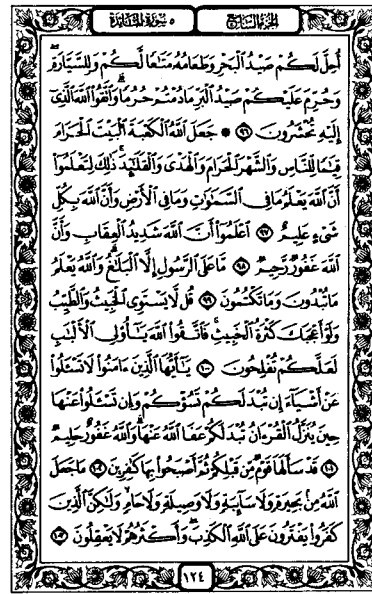 ٥ سورة المائدة
الجزء السابع
أُحِلَّ لَكُمْ صَيْدُ ٱلْبَحْرِ وَطَعَامُهُۥ مَتَٰعًا لَّكُمْ وَلِلسَّيَّارَةِ ۖ
وَحُرِّمَ عَلَيْكُمْ صَيْدُ ٱلْبَرِّ مَا دُمْتُمْ حُرُمًا ۗ وَٱتَّقُوا۟ ٱللَّهَ ٱلَّذِىٓ
إِلَيْهِ تُحْشَرُونَ ٩٦ ۞ جَعَلَ ٱللَّهُ ٱلْكَعْبَةَ ٱلْبَيْتَ ٱلْحَرَامَ
قِيَٰمًا لِّلنَّاسِ وَٱلشَّهْرَ ٱلْحَرَامَ وَٱلْهَدْىَ وَٱلْقَلَٰٓئِدَ ۚ ذَٰلِكَ لِتَعْلَمُوٓا۟
أَنَّ ٱللَّهَ يَعْلَمُ مَا فِى ٱلسَّمَٰوَٰتِ وَمَا فِى ٱلْأَرْضِ وَأَنَّ ٱللَّهَ بِكُلِّ
شَىْءٍ عَلِيمٌ ٩٧ ٱعْلَمُوٓا۟ أَنَّ ٱللَّهَ شَدِيدُ ٱلْعِقَابِ وَأَنَّ
ٱللَّهَ غَفُورٌ رَّحِيمٌ ٩٨ مَّا عَلَى ٱلرَّسُولِ إِلَّا ٱلْبَلَٰغُ ۗ وَٱللَّهُ يَعْلَمُ
مَا تُبْدُونَ وَمَا تَكْتُمُونَ ٩٩ قُل لَّا يَسْتَوِى ٱلْخَبِيثُ وَٱلطَّيِّبُ
وَلَوْ أَعْجَبَكَ كَثْرَةُ ٱلْخَبِيثِ ۚ فَٱتَّقُوا۟ ٱللَّهَ يَٰٓأُو۟لِى ٱلْأَلْبَٰبِ
لَعَلَّكُمْ تُفْلِحُونَ ١٠٠ يَٰٓأَيُّهَا ٱلَّذِينَ ءَامَنُوا۟ لَا تَسْـَٔلُوا۟
عَنْ أَشْيَآءَ إِن تُبْدَ لَكُمْ تَسُؤْكُمْ وَإِن تَسْـَٔلُوا۟ عَنْهَا
حِينَ يُنَزَّلُ ٱلْقُرْءَانُ تُبْدَ لَكُمْ عَفَا ٱللَّهُ عَنْهَا ۗ وَٱللَّهُ غَفُورٌ حَلِيمٌ
١٠١ قَدْ سَأَلَهَا قَوْمٌ مِّن قَبْلِكُمْ ثُمَّ أَصْبَحُوا۟ بِهَا كَٰفِرِينَ ١٠٢ مَا جَعَلَ
ٱللَّهُ مِنۢ بَحِيرَةٍ وَلَا سَآئِبَةٍ وَلَا وَصِيلَةٍ وَلَا حَامٍ ۙ وَلَٰكِنَّ ٱلَّذِينَ
كَفَرُوا۟ يَفْتَرُونَ عَلَى ٱللَّهِ ٱلْكَذِبَ ۖ وَأَكْثَرُهُمْ لَا يَعْقِلُونَ ١٠٣
١٢٤